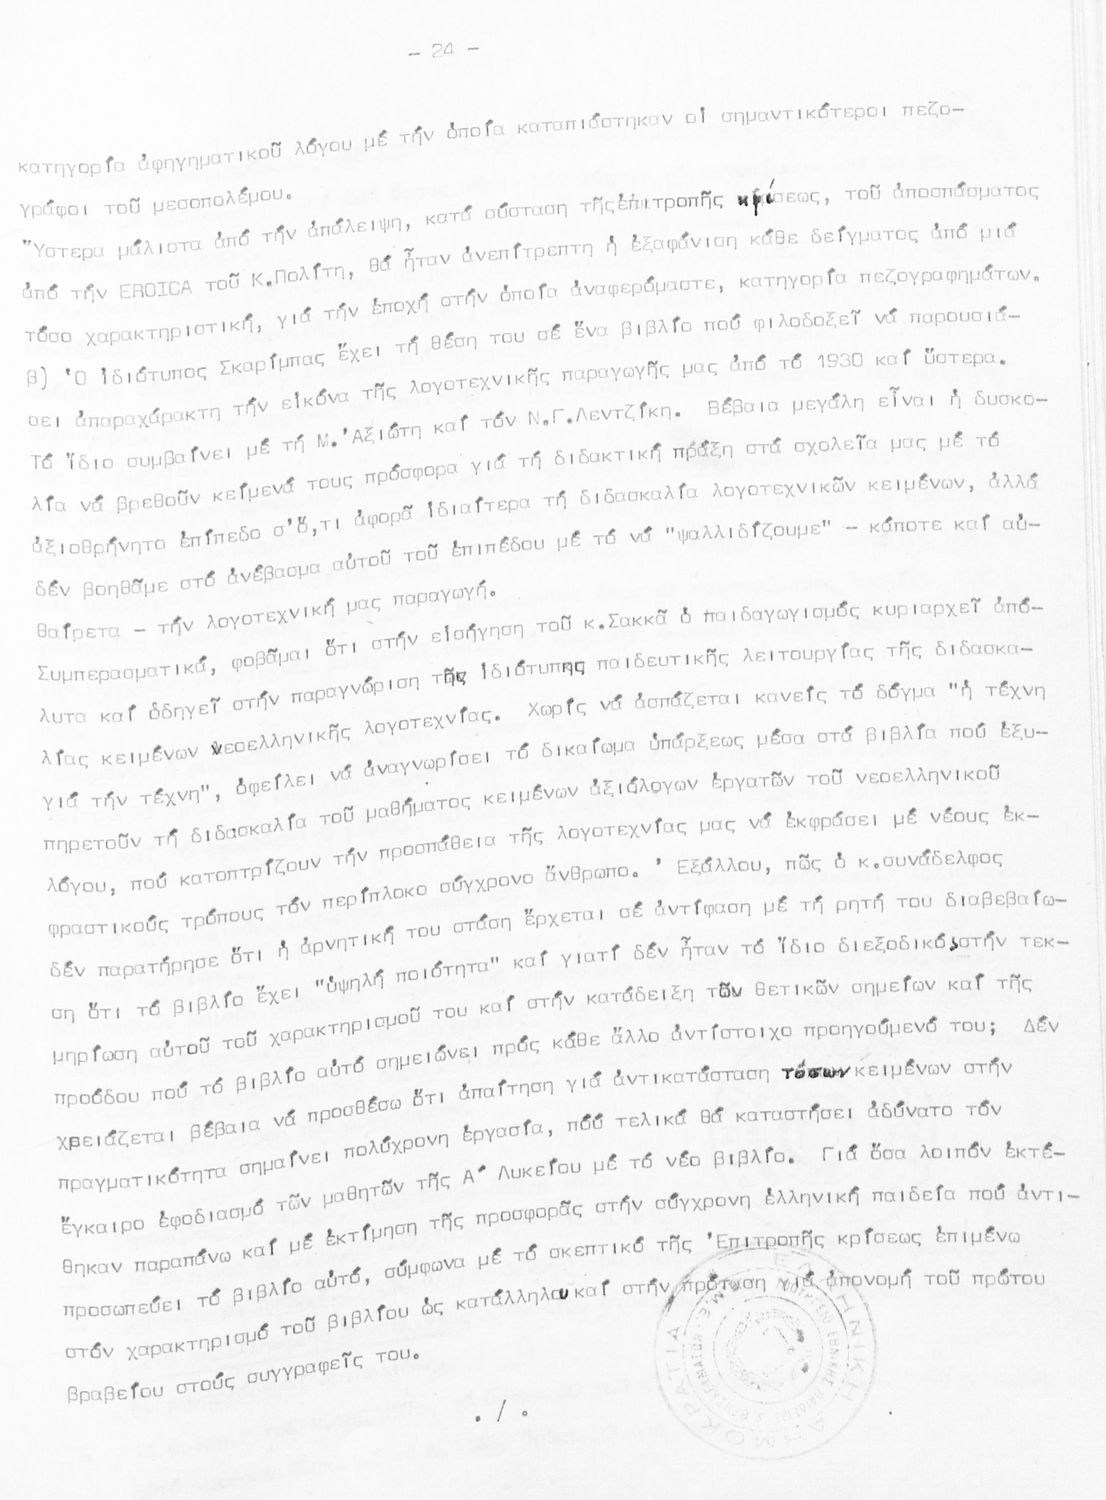 - 24 -
κατηγορία ἀφηγηματικοῦ λόγου μέ τήν ὁποία καταπιάστηκαν οἱ σημαντικότεροι πεζο-
γράφοι τοῦ μεσοπολέμου.
Ὕστερα μάλιστα ἀπό τήν ἀπάλειψη, κατά σύσταση τῆς ἐπιτροπῆς κρίσεως, τοῦ ἀποσπάσματος
ἀπό τήν EROICA τοῦ Κ.Πολίτη, θά ἦταν ἀνεπίτρεπτη ἡ ἐξαφάνιση κάθε δείγματος ἀπό μιά
τόσο χαρακτηριστική, γιά τήν ἐποχή στήν ὁποία ἀναφερόμαστε, κατηγορία πεζογραφημάτων.
β) Ὁ ἰδιότυπος Σκαρίμπας ἔχει τή θέση του σέ ἕνα βιβλίο πού φιλοδοξεῖ νά παρουσιά-
σει ἀπαραχάρακτη τήν εἰκόνα τῆς λογοτεχνικῆς παραγωγῆς μας ἀπό τό 1930 καί ὕστερα.
Τό ἴδιο συμβαίνει μέ τή Μ.Ἀξιώτη καί τόν Ν.Γ.Λεντζίκη. Βέβαια μεγάλη εἶναι ἡ δυσκο-
λία νά βρεθοῦν κείμενά τους πρόσφορα γιά τή διδακτική πράξη στά σχολεῖα μας μέ τό
ἀξιοθρήνητο ἐπίπεδο σ'ὅ,τι ἀφορᾶ ἰδιαίτερα τή διδασκαλία λογοτεχνικῶν κειμένων, ἀλλά
δέν βοηθᾶμε στό ἀνέβασμα αὐτοῦ τοῦ ἐπιπέδου μέ τό νά "ψαλλιδίζουμε" - κάποτε καί αὐ-
θαίρετα - τήν λογοτεχνική μας παραγωγή.
Συμπερασματικά, φοβᾶμαι ὅτι στήν εἰσήγηση τοῦ κ.Σακκᾶ ὁ παιδαγωγισμός κυριαρχεῖ ἀπό-
λυτα καί ὁδηγεῖ στήν παραγνώριση τῆς ἰδιότυπης παιδευτικῆς λειτουργίας τῆς διδασκα-
λίας κειμένων νεοελληνικῆς λογοτεχνίας. Χωρίς νά ἀσπάζεται κανείς τό δόγμα "ἡ τέχνη
γιά τήν τέχνη", ὀφείλει νά ἀναγνωρίσει τό δικαίωμα ὑπάρξεως μέσα στά βιβλία πού ἐξυ-
πηρετοῦν τή διδασκαλία τοῦ μαθήματος κειμένων ἀξιόλογων ἐργατῶν τοῦ νεοελληνικοῦ
λόγου, πού κατοπτρίζουν τήν προσπάθεια τῆς λογοτεχνίας μας νά ἐκφράσει μέ νέους ἐκ-
φραστικούς τρόπους τόν περίπλοκο σύγχρονο ἄνθρωπο. Ἐξάλλου, πῶς ὁ κ.συνάδελφος
δέν παρατήρησε ὅτι ἡ ἀρνητική του στάση ἔρχεται σέ ἀντίφαση μέ τή ρητή του διαβεβαίω-
ση ὅτι τό βιβλίο ἔχει "ὑψηλή ποιότητα" καί γιατί δέν ἦταν τό ἴδιο διεξοδικός στήν τεκ-
μηρίωση αὐτοῦ τοῦ χαρακτηρισμοῦ του καί στήν κατάδειξη τῶν θετικῶν σημείων καί τῆς
προόδου πού τό βιβλίο αὐτό σημειώνει πρός κάθε ἄλλο ἀντίστοιχο προηγούμενό του; Δέν
χρειάζεται βέβαια νά προσθέσω ὅτι ἀπαίτηση γιά ἀντικατάσταση τόσων κειμένων στήν
πραγματικότητα σημαίνει πολύχρονη ἐργασία, πού τελικά θά καταστήσει ἀδύνατο τόν
ἔγκαιρο ἐφοδιασμό τῶν μαθητῶν τῆς Α΄ Λυκείου μέ τό νέο βιβλίο. Γιά ὅσα λοιπόν ἐκτέ-
θηκαν παραπάνω καί μέ ἐκτίμηση τῆς προσφορᾶς στήν σύγχρονη ἑλληνική παιδεία πού ἀντι-
προσωπεύει τό βιβλίο αὐτό, σύμφωνα μέ τό σκεπτικό τῆς Ἐπιτροπῆς κρίσεως ἐπιμένω
στόν χαρακτηρισμό τοῦ βιβλίου ὡς κατάλληλου καί στήν πρόταση γιά ἀπονομή τοῦ πρώτου
βραβείου στούς συγγραφεῖς του.
./.
ΕΛΛΗΝΙΚΗ ΔΗΜΟΚΡΑΤΙΑ